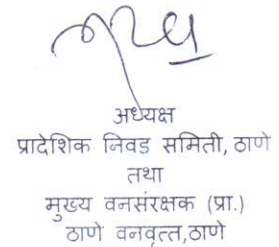 अध्यक्ष
प्रादेशिक निवड समिती, ठाणे
तथा
मुख्य वनसंरक्षक (प्रा.)
ठाणे वनवृत्त,ठाणे